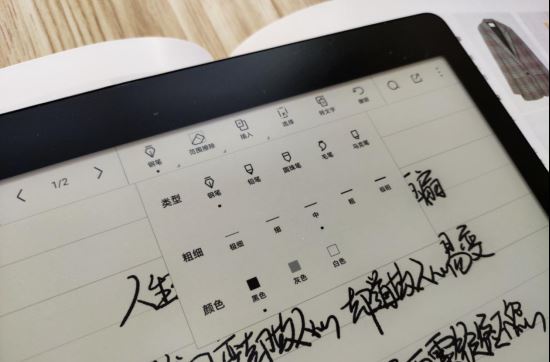 1/2 钢笔 范围擦除 插入 选择 转文字 撤销
类型 钢笔 铅笔 圆珠笔 毛笔 马克笔
粗细 极细 细 中 粗 极粗
颜色 黑色 灰色 白色
人生
变却故人心 却道故人心易变